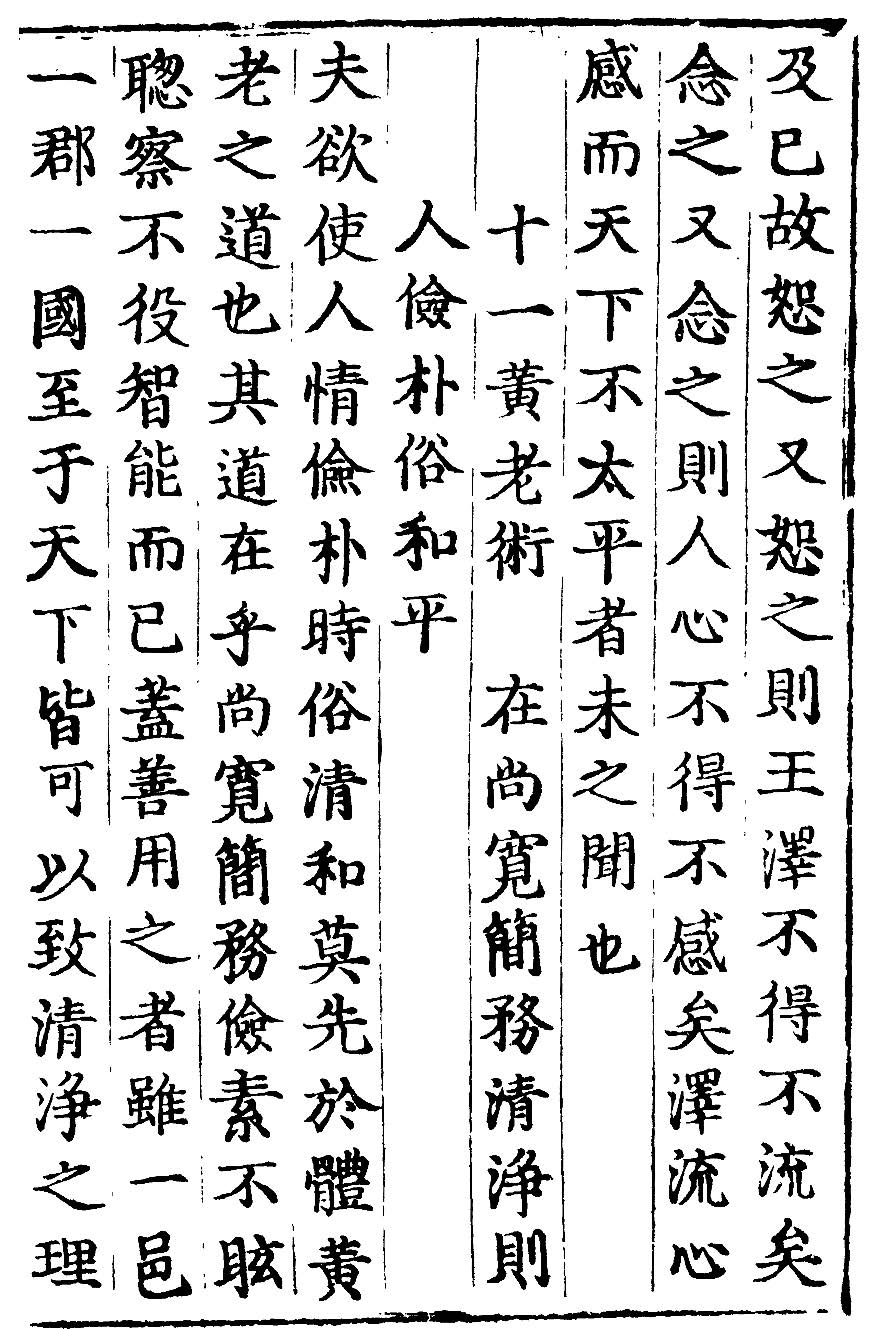 及己故恕之又恕之則王澤不得不流矣
念之又念之則人心不得不感矣澤流心
感而天下不太平者未之聞也
十一黃老術　在尚寬簡務清淨則
人儉朴俗和平
夫欲使人情儉朴時俗清和莫先於體黃
老之道也其道在乎尚寬簡務儉素不眩
聦察不役智能而已蓋善用之者雖一邑
一郡一國至于天下皆可以致清淨之理